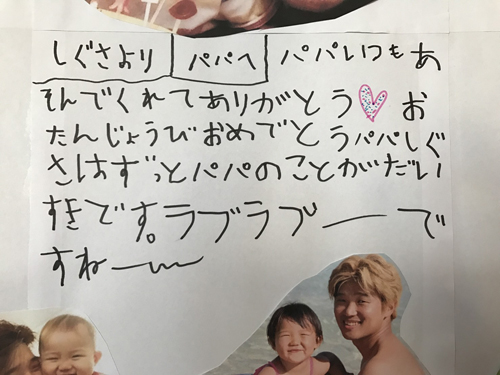 しぐさより パパへ パパいつもあ
そんでくれてありがとう♡お
たんじょうびおめでとうパパしぐ
さはずっとパパのことがだい
すきです。ラブラブーで
すねー〜